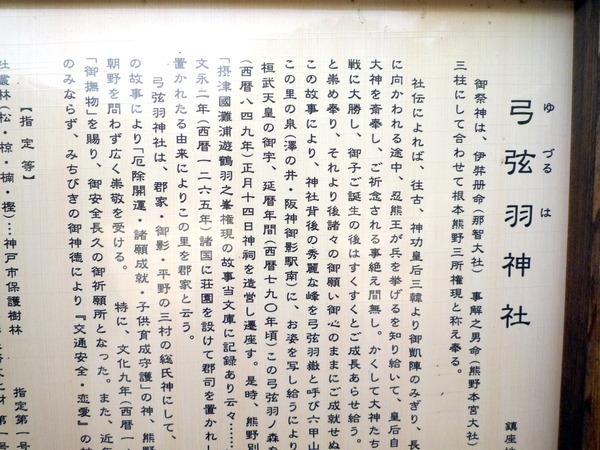 ゆづるは
弓弦羽神社
鎮座地
御祭神は、伊弉册命(那智大社) 事解之男命(熊野本宮大社)
三柱にして合わせて根本熊野三所権現と称え奉る。
社伝によれば、往古、神功皇后三韓より御凱陣のみぎり、長
に向かわれる途中、忍熊王が兵を挙げるを知り給いて、皇后自
大神を斎奉し、ご祈念される事絶え間無し。かくして大神たち
戦に大勝し、御子ご誕生の後はすくすくとご成長あらせ給う。
と崇め奉り、それより後諸々の御願い御心のままにご成就せぬ
この故事により、神社背後の秀麗な峰を弓弦羽嶽と呼び六甲山
この里の泉(澤の井・阪神御影駅南)に、お姿を写し給うにより
桓武天皇の御宇、延暦年間(西暦七九〇年頃)この弓弦羽ノ森を
(西暦八四九年)正月十四日神祠を造営し遷座す。是時、熊野別
「摂津國灘浦遊鶴羽之峯権現の故事当文庫に記録あり云々……
文永二年(西暦一二六五年)諸国に荘園を設けて郡司を置かれし
置かれたる由来によりこの里を郡家と云う。
弓弦羽神社は、郡家・御影・平野の三村の総氏神にして、
の故事により「厄除開運・諸願成就・子供育成守護」の神、熊野
朝野を問わず広く崇敬を受ける。 特に、文化九年(西暦一
「御撫物」を賜り、御安全長久の御祈願所となった。また、近年
のみならず、みちびきの御神徳により『交通安全・恋愛』の
【指定等】
社叢林(松・椋・楠・樫)…神戸市保護樹林 指定第一号